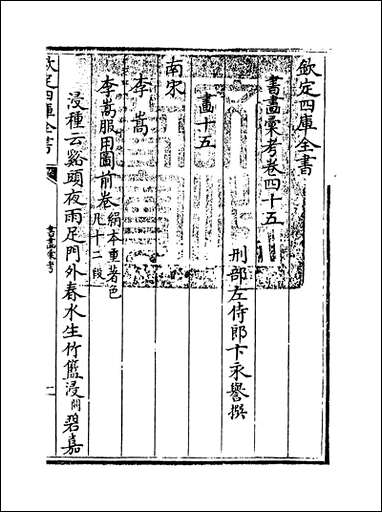 欽定四庫全書
書畫彙考卷四十五
刑部左侍郎卞永譽撰
畫十五
南宋
李嵩
李嵩服田圖前卷 絹本重著色 凡十二段
浸種云谿頭夜雨足門外春水生竹籃浸 闕 碧嘉
欽定四庫全書
書畫彙考
一